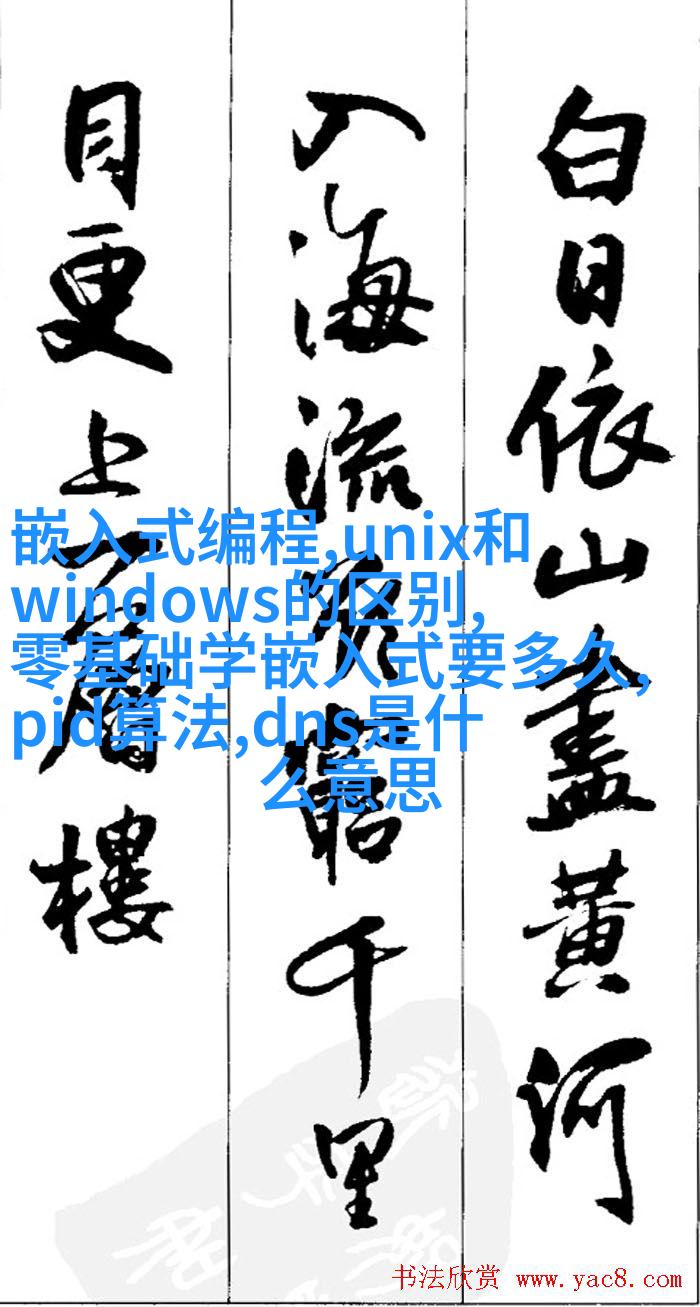 白日依山盡黃河
入海流欲窮千里
目更上一層樓
嵌入式编程,unix和
windows的区别,
零基础学嵌入式要多久,
pid算法,dns是什
么意思
书法欣赏 www.yac8.com